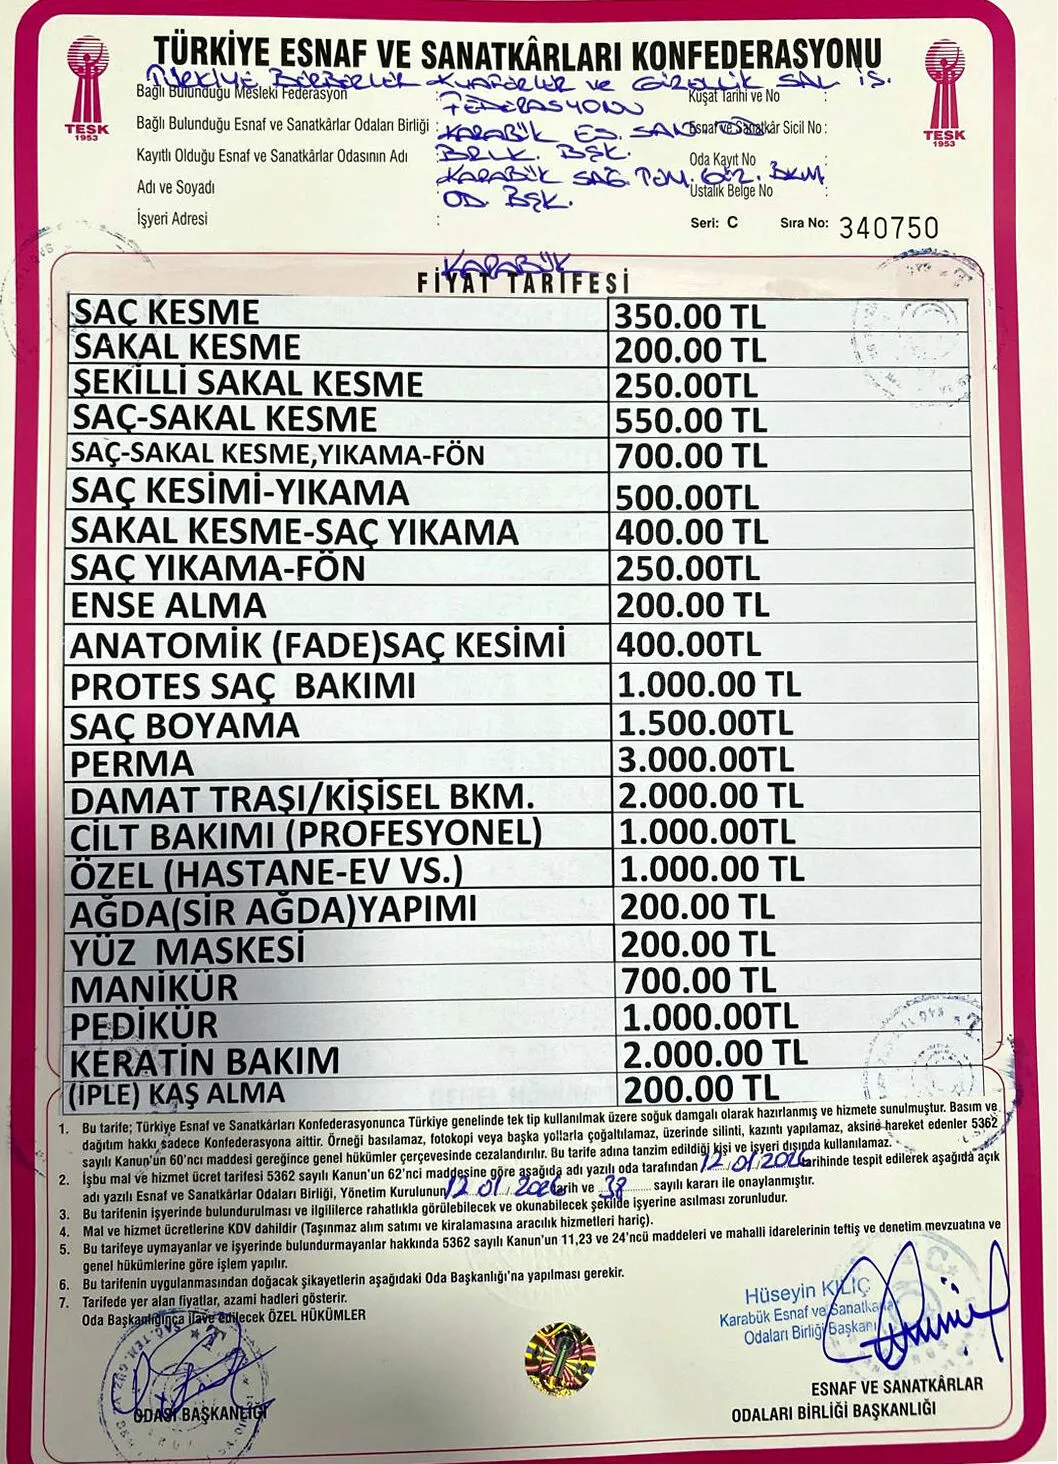 TÜRKİYE ESNAF VE SANATKÂRLARI KONFEDERASYONU
TESK
1953
TESK
1953
TÜRKİYE BERBERLER KUAFÖRLER VE GÜZELLİK SAL İŞ.
Bağlı Bulunduğu Mesleki Federasyon : FEDERASYONU
Kuşat Tarihi ve No :
Bağlı Bulunduğu Esnaf ve Sanatkârlar Odaları Birliği : KARABÜK ES. SAN. OD
Esnaf ve Sanatkâr Sicil No :
Kayıtlı Olduğu Esnaf ve Sanatkârlar Odasının Adı : BRLK. BŞK.
Oda Kayıt No :
Adı ve Soyadı : KARABÜK SAĞ. TÜM. GÜZ. BKM
Ustalık Belge No :
OD. BŞK.
İşyeri Adresi :
Seri: C Sıra No: 340750
KARABÜK
FİYAT TARİFESİ
SAÇ KESME 350.00 TL
SAKAL KESME 200.00 TL
ŞEKİLLİ SAKAL KESME 250.00TL
SAÇ-SAKAL KESME 550.00 TL
SAÇ-SAKAL KESME,YIKAMA-FÖN 700.00 TL
SAÇ KESİMİ-YIKAMA 500.00TL
SAKAL KESME-SAÇ YIKAMA 400.00 TL
SAÇ YIKAMA-FÖN 250.00TL
ENSE ALMA 200.00 TL
ANATOMİK (FADE)SAÇ KESİMİ 400.00TL
PROTES SAÇ BAKIMI 1.000.00 TL
SAÇ BOYAMA 1.500.00TL
PERMA 3.000.00TL
DAMAT TRAŞI/KİŞİSEL BKM. 2.000.00 TL
CİLT BAKIMI (PROFESYONEL) 1.000.00TL
ÖZEL (HASTANE-EV VS.) 1.000.00 TL
AĞDA(SİR AĞDA)YAPIMI 200.00 TL
YÜZ MASKESİ 200.00 TL
MANİKÜR 700.00 TL
PEDİKÜR 1.000.00TL
KERATİN BAKIM 2.000.00 TL
(İPLE) KAŞ ALMA 200.00 TL
1. Bu tarife; Türkiye Esnaf ve Sanatkârları Konfederasyonunca Türkiye genelinde tek tip kullanılmak üzere soğuk damgalı olarak hazırlanmış ve hizmete sunulmuştur. Basım ve
dağıtım hakkı sadece Konfederasyona aittir. Örneği basılamaz, fotokopi veya başka yollarla çoğaltılamaz, üzerinde silinti, kazıntı yapılamaz, aksine hareket edenler 5362
sayılı Kanun'un 60'ncı maddesi gereğince genel hükümler çerçevesinde cezalandırılır. Bu tarife adına tanzim edildiği kişi ve işyeri dışında kullanılamaz.
2. İşbu mal ve hizmet ücret tarifesi 5362 sayılı Kanun'un 62'nci maddesine göre aşağıda adı yazılı oda tarafından 12/01/2026 tarihinde tespit edilerek aşağıda açık
adı yazılı Esnaf ve Sanatkârlar Odaları Birliği, Yönetim Kurulunun 12/01/2026 tarih ve 38 sayılı kararı ile onaylanmıştır.
3. Bu tarifenin işyerinde bulundurulması ve ilgililerce rahatlıkla görülebilecek ve okunabilecek şekilde işyerine asılması zorunludur.
4. Mal ve hizmet ücretlerine KDV dahildir (Taşınmaz alım satımı ve kiralamasına aracılık hizmetleri hariç).
5. Bu tarifeye uymayanlar ve işyerinde bulundurmayanlar hakkında 5362 sayılı Kanun'un 11,23 ve 24'ncü maddeleri ve mahalli idarelerinin teftiş ve denetim mevzuatına ve
genel hükümlerine göre işlem yapılır.
6. Bu tarifenin uygulanmasından doğacak şikayetlerin aşağıdaki Oda Başkanlığı'na yapılması gerekir.
7. Tarifede yer alan fiyatlar, azami hadleri gösterir.
Oda Başkanlığınca ilave edilecek ÖZEL HÜKÜMLER
Hüseyin KILIÇ
Karabük Esnaf ve Sanatkarlar
Odaları Birliği Başkanı
ODASI BAŞKANLIĞI
ESNAF VE SANATKÂRLAR
ODALARI BİRLİĞİ BAŞKANLIĞI